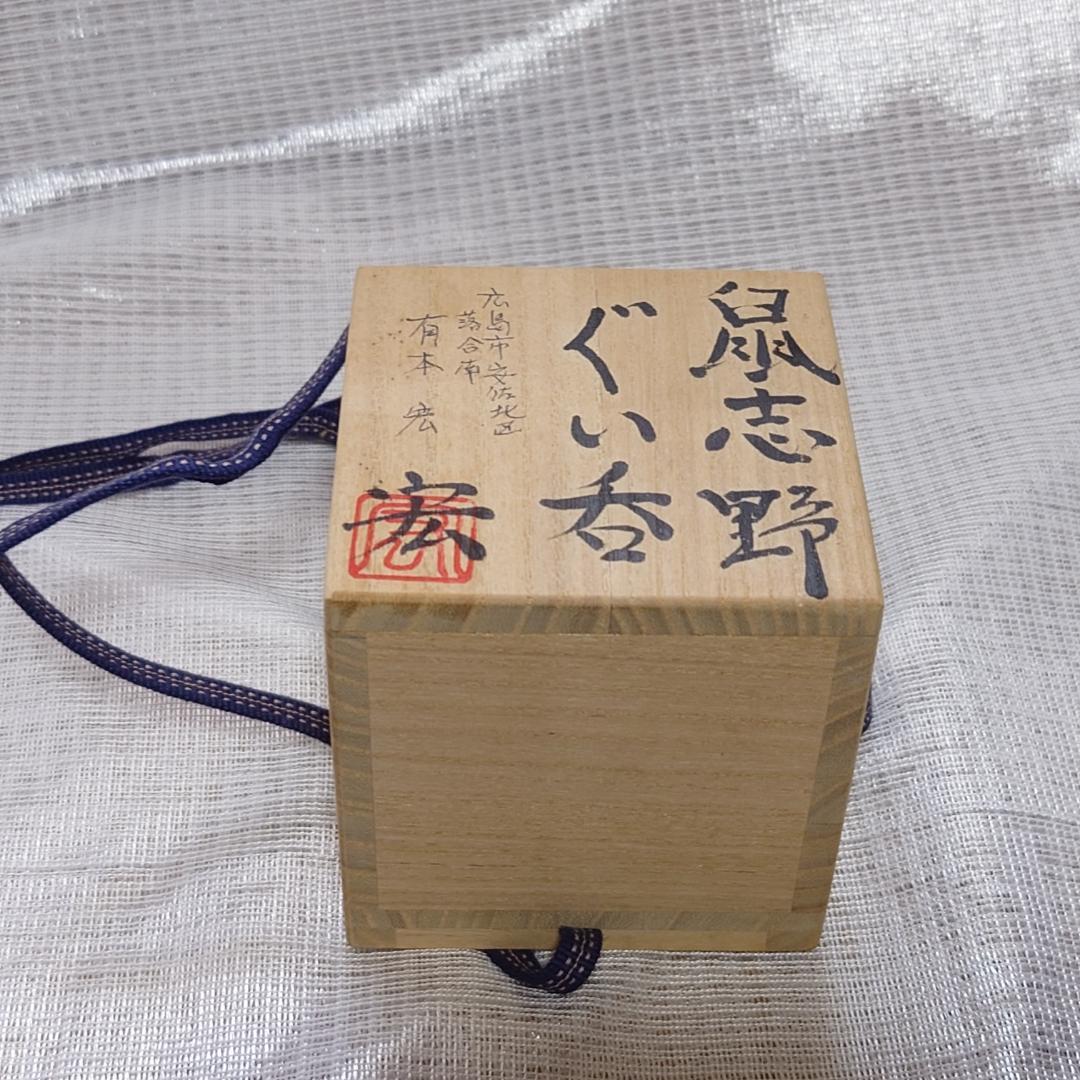 鼠志野
ぐい呑
広島市安佐北区
落合南
有本 宏
宏